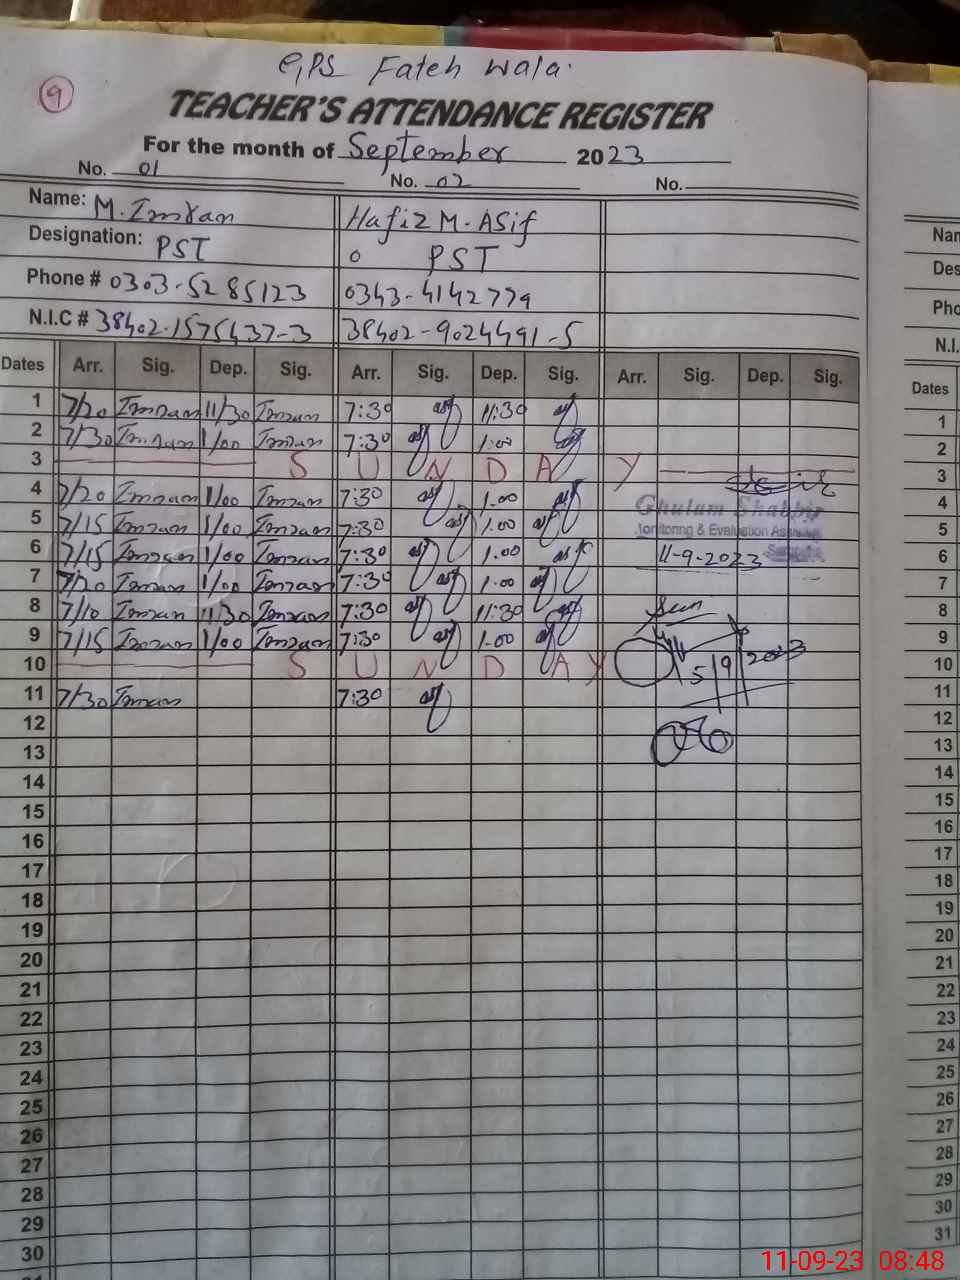 GPS Fateh Wala.
9
TEACHER'S ATTENDANCE REGISTER
For the month of September 2023
No. 01 No. 02 No.
Name: M. Imran Hafiz M. Asif
Designation: PST PST
Phone # 0303-5285123 0343-4142779
N.I.C # 38402-1575437-3 38402-9024491-5
Dates Arr. Sig. Dep. Sig. Arr. Sig. Dep. Sig. Arr. Sig. Dep. Sig.
1 7/20 Imran 11/30 Imran 7:30 asif 11:30 asif
2 7/30 Imran 1/00 Imran 7:30 asif 1:00 asif
3 S U N D A Y
4 7/20 Imran 1/00 Imran 7:30 asif 1.00 asif
Ghulam Shabbir
5 7/15 Imran 1/00 Imran 7:30 asif 1.00 asif
Monitoring & Evaluation Assistant
6 7/15 Imran 1/00 Imran 7:30 asif 1.00 asif 11-9-2023
7 7/20 Imran 1/00 Imran 7:30 asif 1.00 asif
8 7/10 Imran 11/30 Imran 7:30 asif 11:30 asif
9 7/15 Imran 1/00 Imran 7:30 asif 1.00 asif
10 S U N D A Y 5/9/2023
11 7/30 Imran 7:30 asif
12
13
14
15
16
17
18
19
20
21
22
23
24
25
26
27
28
29
30
Nam
Des
Pho
N.I.
Dates
1
2
3
4
5
6
7
8
9
10
11
12
13
14
15
16
17
18
19
20
21
22
23
24
25
26
27
28
29
30
31
11-09-23 08:48